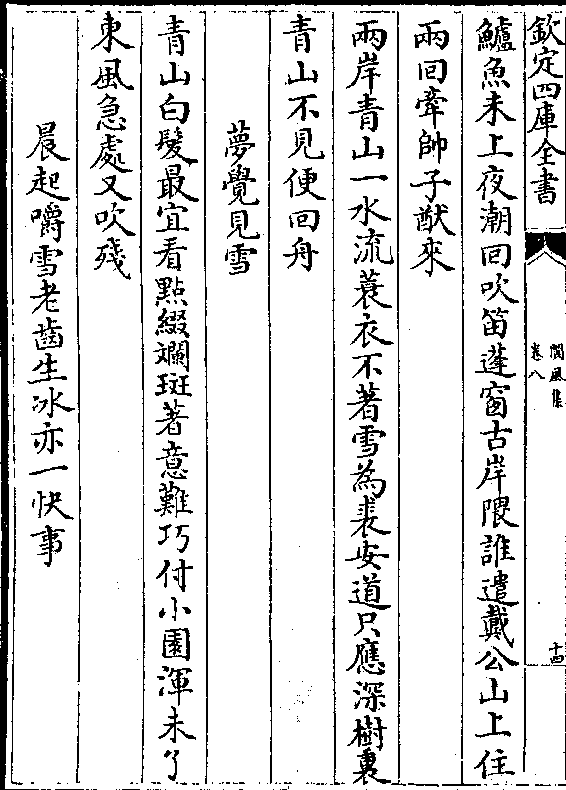 欽定四庫全書
閬風集
卷八
十四
鱸魚未上夜潮回吹笛蓬窗古岸隈誰遣戴公山上住
兩回牽帥子猷來
兩岸青山一水流蓑衣不著雪為裘安道只應深樹裏
青山不見便回舟
夢覺見雪
青山白髮最宜看點綴斕斑著意難巧付小園渾未了
東風急處又吹殘
晨起嚼雪老齒生冰亦一快事